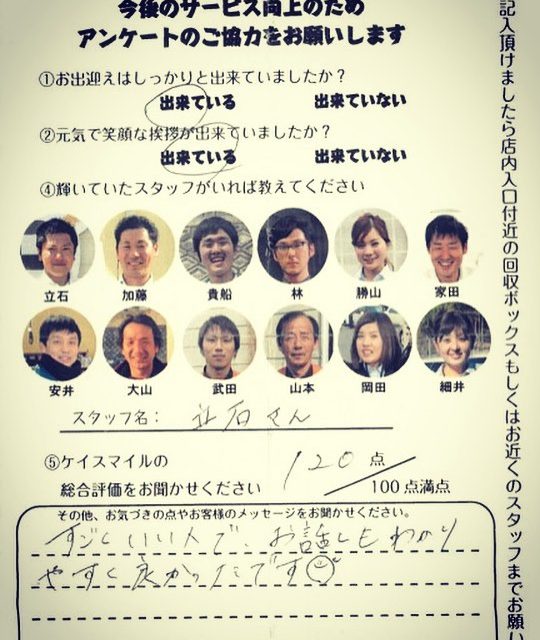 今後のサービス向上のため
アンケートのご協力をお願いします
①お出迎えはしっかりと出来ていましたか？
出来ている 出来ていない
②元気で笑顔な挨拶が出来ていましたか？
出来ている 出来ていない
④輝いていたスタッフがいれば教えてください
立石 加藤 貴船 林 勝山 家田
安井 大山 武田 山本 岡田 細井
スタッフ名： 立石さん
⑤ケイスマイルの
総合評価をお聞かせください
120 点
100点満点
その他、お気づきの点やお客様のメッセージをお聞かせください。
すごくいい人で、お話しもわかり
やすく良かったです
記入頂けましたら店内入口付近の回収ボックスもしくはお近くのスタッフまでお願い